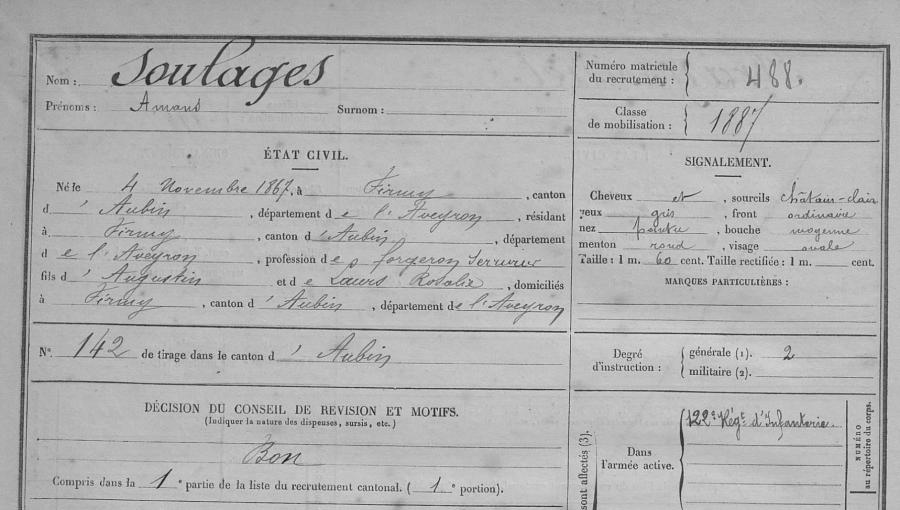 Nom : Soulages
Prénoms : Amans Surnom :
ÉTAT CIVIL.
Né le 4 Novembre 1867, à Firmy, canton
d'Aubin, département de l'Aveyron, résidant
à Firmy, canton d'Aubin, département
de l'Aveyron, profession de forgeron Serrurier
fils d'Augustin et de Laurs Rosalie, domiciliés
à Firmy, canton d'Aubin, département de l'Aveyron
N°. 142 de tirage dans le canton d'Aubin
DÉCISION DU CONSEIL DE REVISION ET MOTIFS.
(Indiquer la nature des dispenses, sursis, etc.)
Bon
Compris dans la 1e partie de la liste du recrutement cantonal. (1e portion).
Numéro matricule
du recrutement : 488.
Classe
de mobilisation : 1887
SIGNALEMENT.
Cheveux et, sourcils châtain-clair
yeux gris, front ordinaire
nez pointu, bouche moyenne
menton rond, visage ovale
Taille : 1 m. 60 cent. Taille rectifiée : 1 m. cent.
MARQUES PARTICULIÈRES :
Degré
d'instruction :
générale (1). 2
militaire (2).
sont affectés (3).
Dans
l'armée active.
122e Régt d'Infanterie.
NUMÉRO
au répertoire du corps.